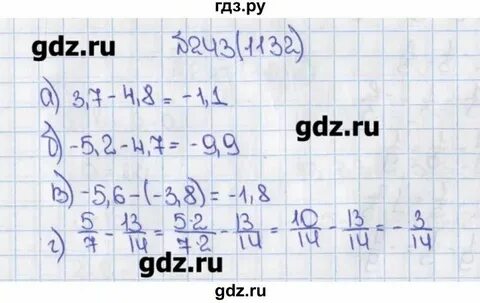 гдз.ру
gdz.ru
№243(1132)
gdz.ru
а) 3,7-4,8=-1,1
gdz.ru
б) -5,2-4,7=-9,9
в) -5,6-(-3,8)=-1,8
г) 5/7 - 13/14 = 5·2/7·2 - 13/14 = 10/14 - 13/14 = -3/14
gdz.ru
gdz.ru